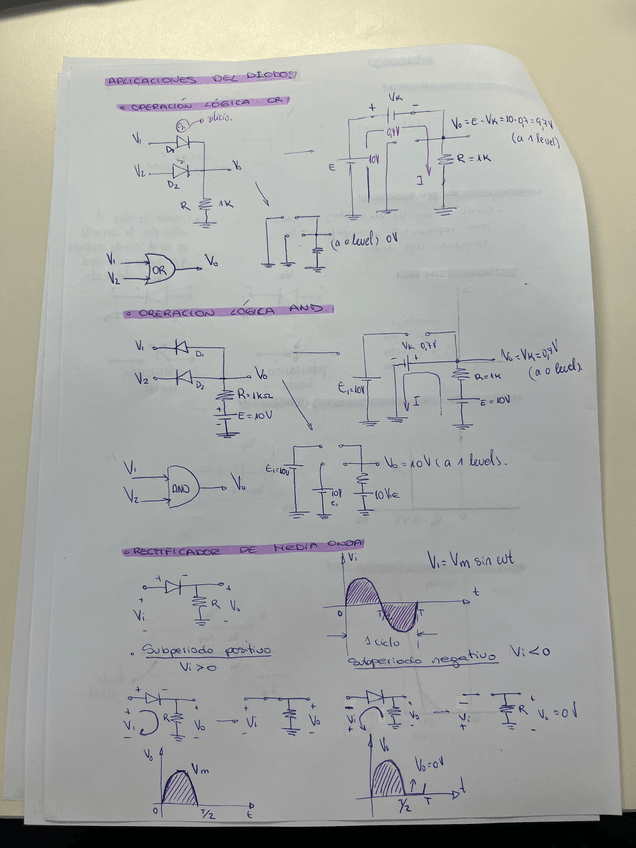 APLICACIONES DEL DIODO:
• OPERACIÓN LÓGICA OR
silicio.
V1
D1
Si
V2
D2
V0
R 1K
+ VK -
0,7V
E
10V
I
R = 1K
V0 = E - VK = 10 - 0,7 = 9,7V
(a 1 level)
(a 0 level) 0V
V1
V2
OR
V0
• OPERACION LÓGICA AND.
V1
D1
V2
D2
V0
R = 1KΩ
E = 10V
VK 0,7V
- +
E1 = 10V
I
V0 = VK = 0,7V
(a 0 level).
R = 1K
E = 10V
V1
V2
AND
V0
E1 = 10V
10V
E1
10V = E
V0 = 10V (a 1 level).
• RECTIFICADOR DE MEDIA ONDA
+ - +
Vi R V0
- -
Vi
Vi = Vm sin ωt
0 T/2 T t
1 ciclo
• Subperiodo positivo
Vi > 0
Subperiodo negativo Vi < 0
+ - +
Vi R V0
- -
+ +
Vi V0
- -
Vi V0
Vi R V0 = 0V
V0
Vm
0 T/2 t
V0
V0 = 0V
T/2 T t